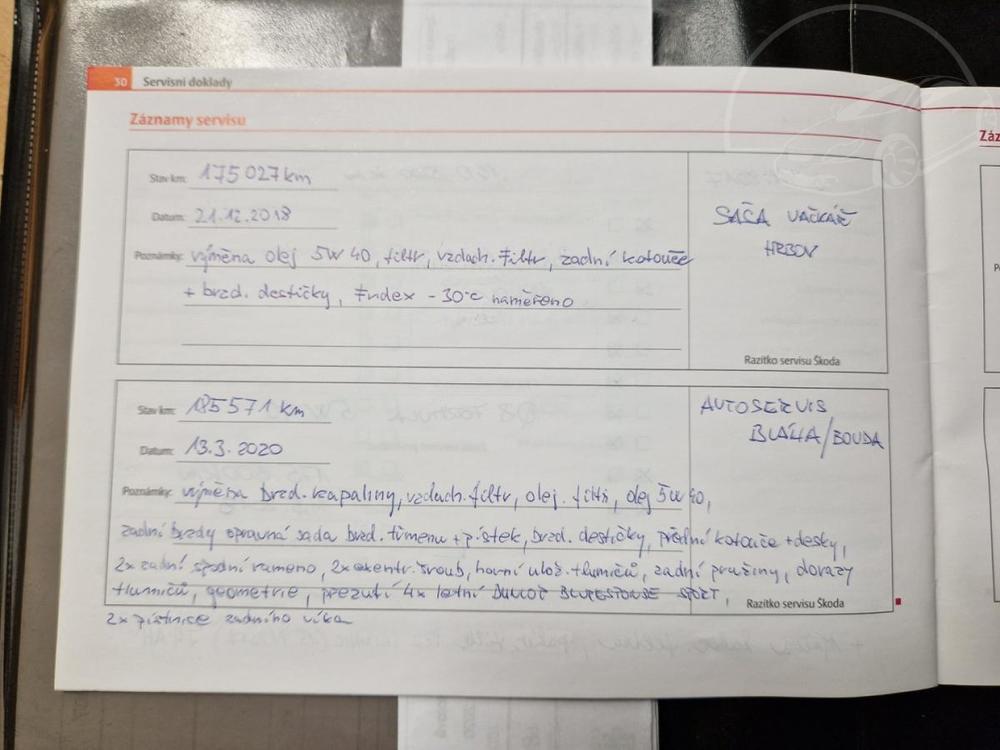 30 Servisní doklady
Záznamy servisu
Stav km: 175 027 km
Datum: 21.12.2018
Poznámky: výměna olej 5W40, filtr, vzduch. filtr, zadní kotouče
+ brzd. destičky, Fridex -30°C naměřeno
SÁČA VAČKÁŘ
HRBOV
Razítko servisu Škoda
Stav km: 185 571 km
Datum: 13.3.2020
Poznámky: výměna brzd. kapaliny, vzduch. filtr, olej. filtr, olej 5W40,
zadní brzdy opravná sada brzd. třmenu + pístek, brzd. destičky, přední kotouče + desky,
2x zadní spodní rameno, 2x excentr. šroub, horní ulož. tlumičů, zadní pružiny, dorazy
tlumičů, geometrie, přezutí 4x letní DUNLOP SPORT,
2x pístnice zadního víka
AUTOSERVIS
BLÁHA/BOUDA
Razítko servisu Škoda
Záz